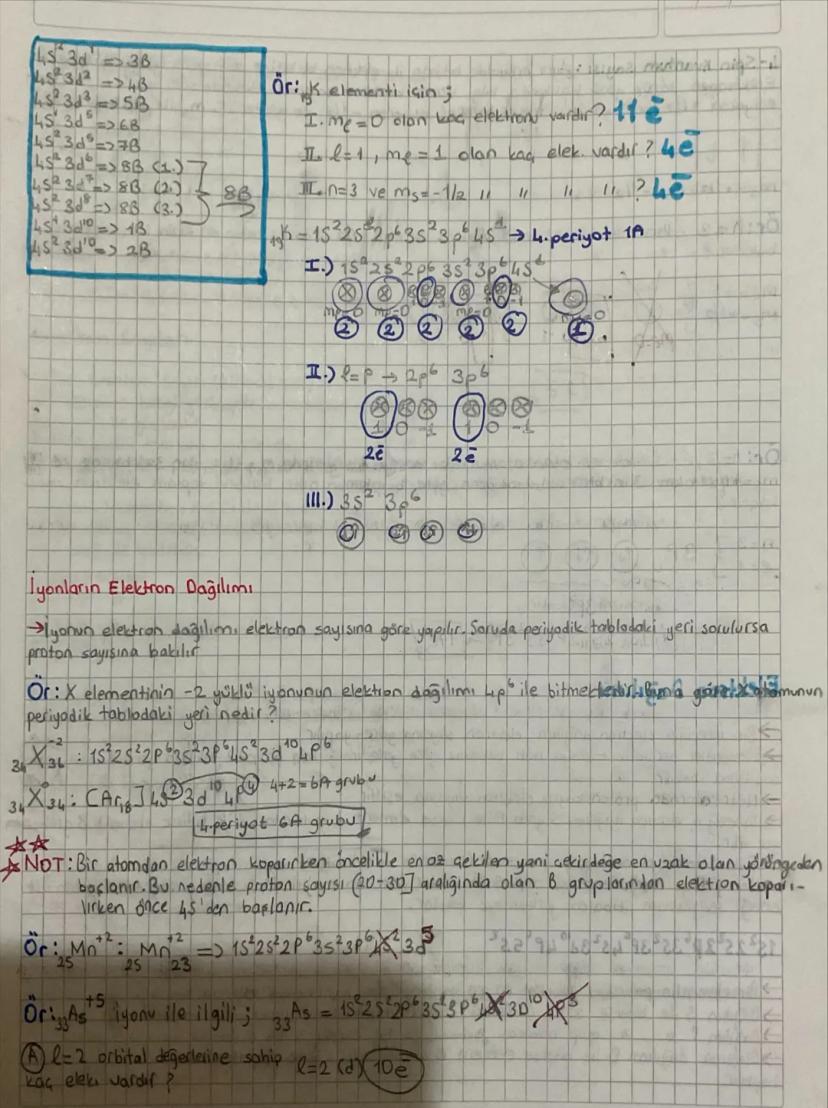 4s² 3d¹ => 3B
4s² 3d² => 4B
4s² 3d³ => 5B
4s¹ 3d⁵ => 6B
4s² 3d⁵ => 7B
4s² 3d⁶ => 8B (1.)
4s² 3d⁷ => 8B (2.) 8B
4s² 3d⁸ => 8B (3.)
4s¹ 3d¹⁰ => 1B
4s² 3d¹⁰ => 2B
Ör: ₁₉K elementi için;
I. mℓ=0 olan kaç elektronu vardır? 11 ē
II. ℓ=1, mℓ=1 olan kaç elek. vardır? 4ē
III. n=3 ve ms=-1/2 " " " " ? 4ē
₁₉K = 1s² 2s² 2p⁶ 3s² 3p⁶ 4s¹ → 4.periyot 1A
I.) 1s² 2s² 2p⁶ 3s² 3p⁶ 4s¹
mℓ=0 mℓ=0 mℓ=0 mℓ=0
2 2 2 2 2 1
II.) ℓ=p → 2p⁶ 3p⁶
1 0 -1 1 0 -1
2ē 2ē
III.) 3s² 3p⁶
İyonların Elektron Dağılımı
→İyonun elektron dağılımı elektron sayısına göre yapılır. Soruda periyodik tablodaki yeri sorulursa
proton sayısına bakılır
Ör: X elementinin -2 yüklü iyonunun elektron dağılımı 4p⁶ ile bitmektedir. Buna göre X atomunun
periyodik tablodaki yeri nedir?
₃₄X₃₆⁻² : 1s² 2s² 2p⁶ 3s² 3p⁶ 4s² 3d¹⁰ 4p⁶
₃₄X⁰₃₄ : [Ar₁₈] 4s² 3d¹⁰ 4p⁴ 4+2=6A grubu
4.periyot 6A grubu
NOT: Bir atomdan elektron koparırken öncelikle en az çekilen yani çekirdeğe en uzak olan yörüngeden
başlanır. Bu nedenle proton sayısı (20-30] aralığında olan B gruplarından elektron koparı-
lırken önce 4s'den başlanır.
Ör: ₂₅Mn⁺² : ₂₅Mn₂₃⁺² => 1s² 2s² 2p⁶ 3s² 3p⁶ 4s² 3d⁵
Ör: ₃₃As⁺⁵ iyonu ile ilgili; ₃₃As = 1s² 2s² 2p⁶ 3s² 3p⁶ 4s² 3D¹⁰ 4p³
A ℓ=2 orbital değerlerine sahip ℓ=2 (d) 10ē
kaç elekt vardır?